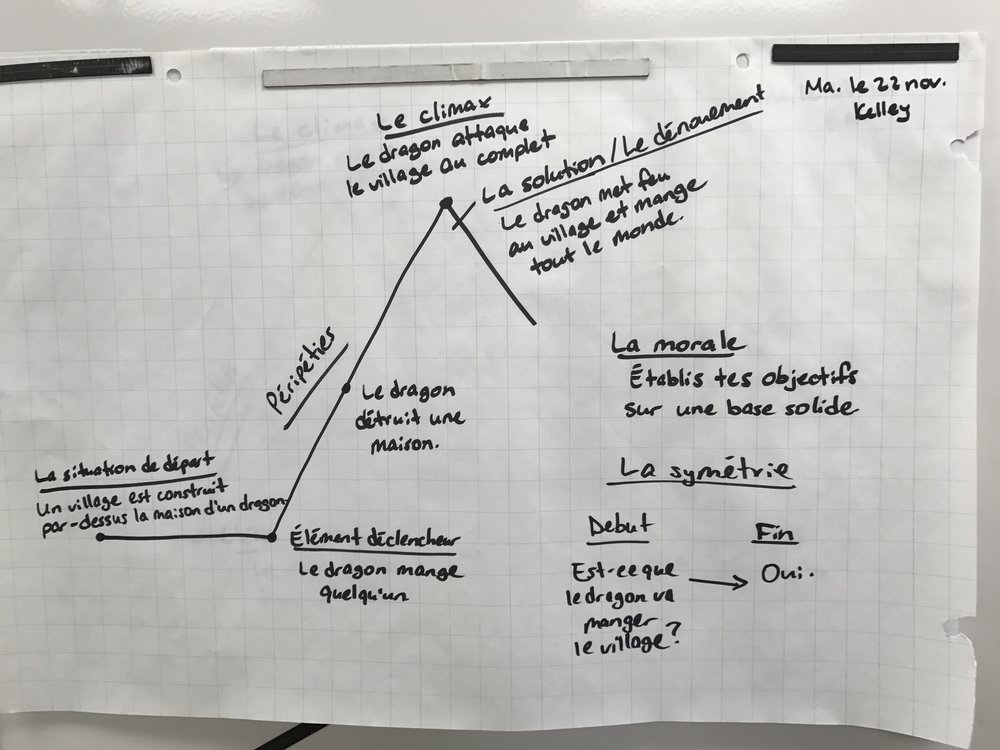 Ma. le 22 nov.
Kelley
Le climax
Le dragon attaque
le village au complet
La solution/Le dénouement
Le dragon met feu
au village et mange
tout le monde.
Péripéties
Le dragon
détruit une
maison.
La situation de départ
Un village est construit
par-dessus la maison d'un dragon.
Élément déclencheur
Le dragon mange
quelqu'un
La morale
Établis tes objectifs
sur une base solide
La symétrie
Debut
Est-ce que
le dragon va
manger
le village?
Fin
Oui.